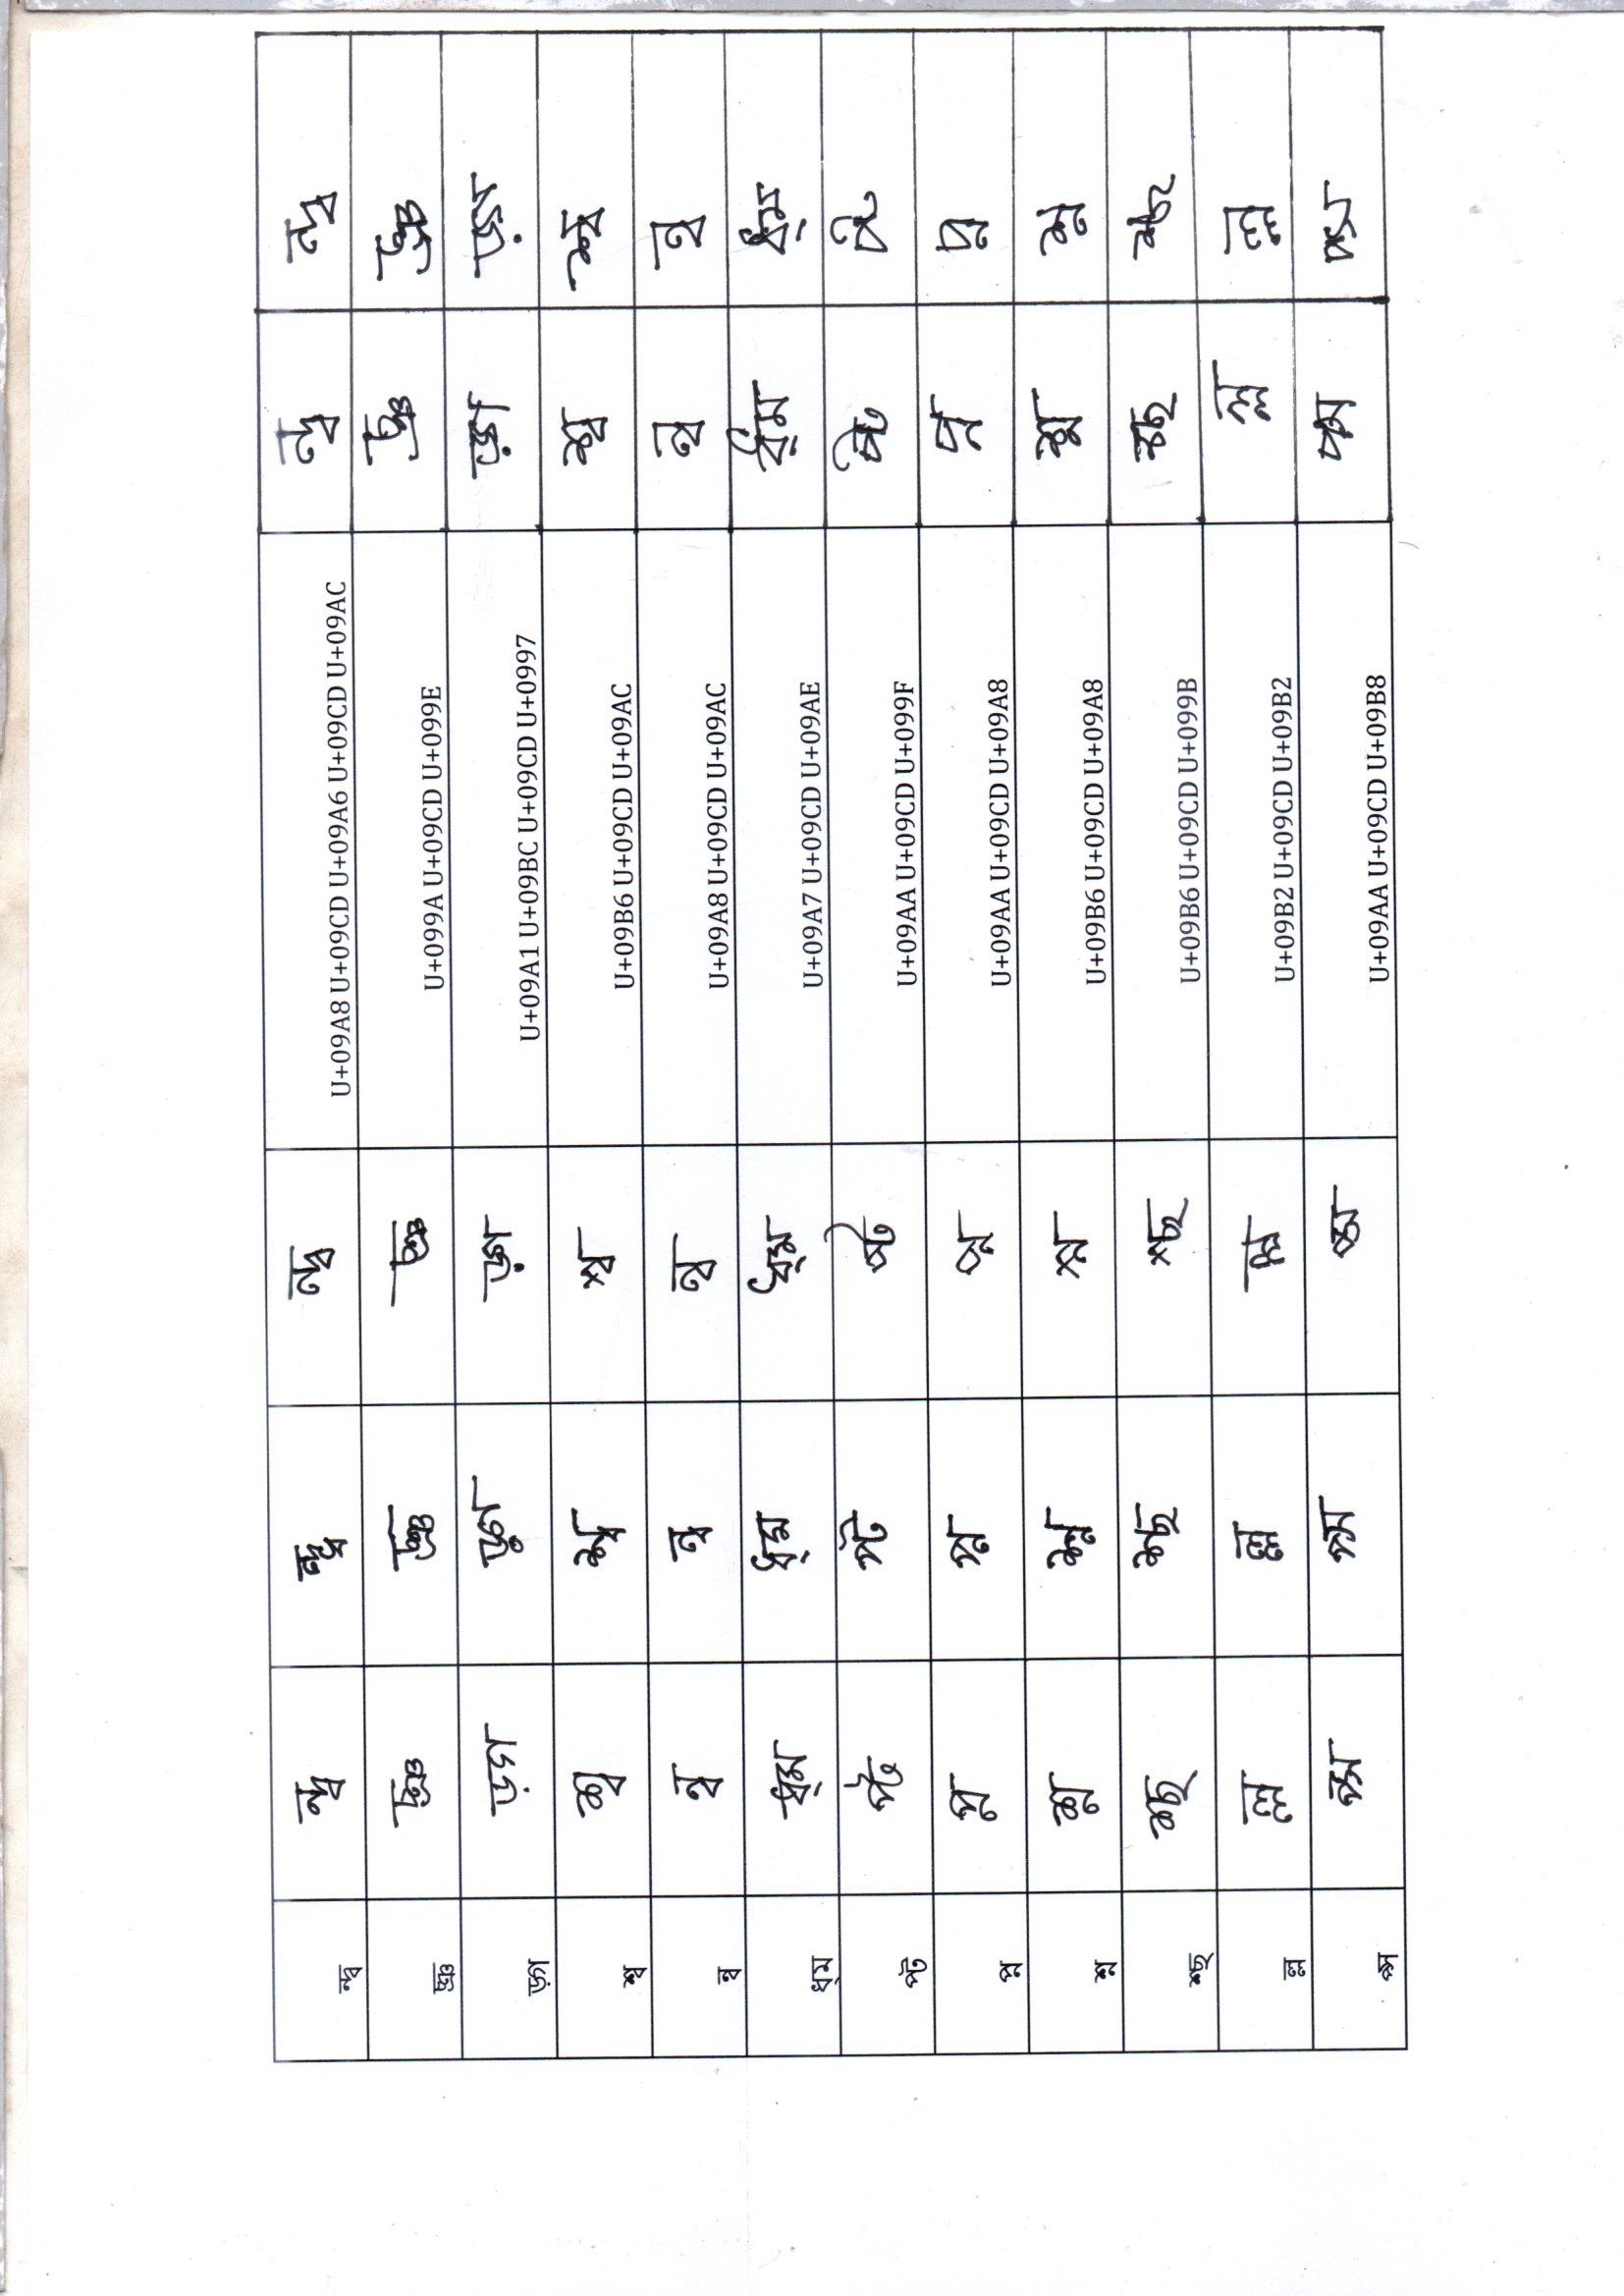 ন্দ্ব ন্দ্ব ন্দ্ব ন্দ্ব U+09A8 U+09CD U+09A6 U+09CD U+09AC ন্দ্ব ন্দ্ব
চ্ঞ চ্ঞ চ্ঞ চ্ঞ U+099A U+09CD U+099E চ্ঞ চ্ঞ
ড়্গ ড়্গ ড়্গ ড়্গ U+09A1 U+09BC U+09CD U+0997 ড়্গ ড়্গ
শ্ব শ্ব শ্ব শ্ব U+09B6 U+09CD U+09AC শ্ব শ্ব
ন্ব ন্ব ন্ব ন্ব U+09A8 U+09CD U+09AC ন্ব ন্ব
ধ্ম ধ্ম ধ্ম ধ্ম U+09A7 U+09CD U+09AE ধ্ম ধ্ম
প্ট প্ট প্ট প্ট U+09AA U+09CD U+099F প্ট প্ট
প্ন প্ন প্ন প্ন U+09AA U+09CD U+09A8 প্ন প্ন
শ্ন শ্ন শ্ন শ্ন U+09B6 U+09CD U+09A8 শ্ন শ্ন
শ্ছ শ্ছ শ্ছ শ্ছ U+09B6 U+09CD U+099B শ্ছ শ্ছ
ল্ল ল্ল ল্ল ল্ল U+09B2 U+09CD U+09B2 ল্ল ল্ল
প্স প্স প্স প্স U+09AA U+09CD U+09B8 প্স প্স